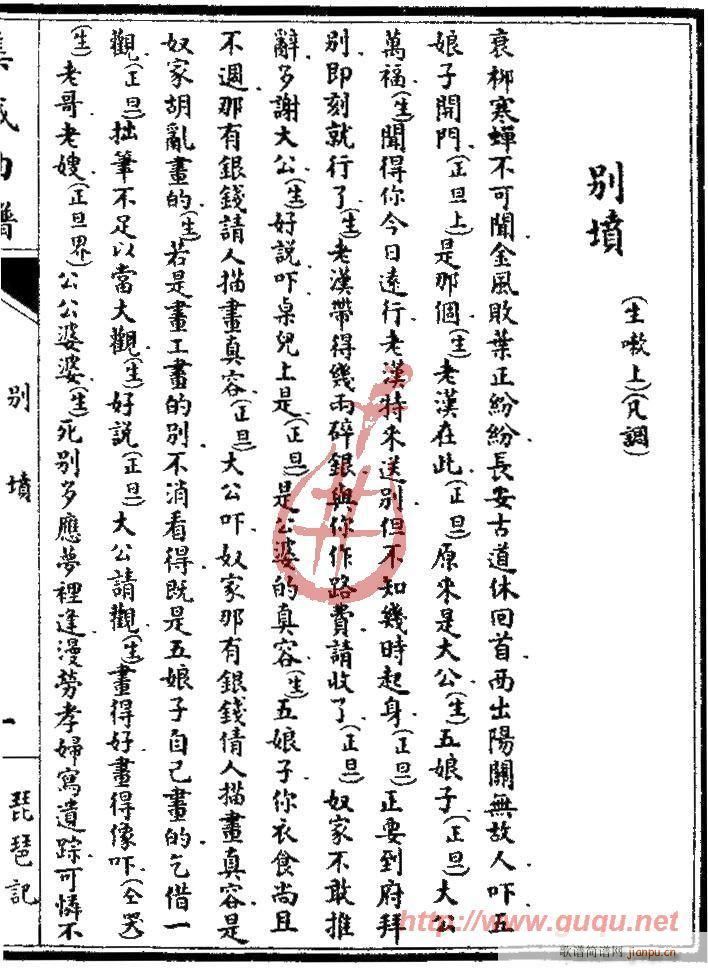 別墳
(生嗽上)(凡調)
衰柳寒蟬不可聞金風敗葉正紛紛長安古道休回首西出陽關無故人吓五
娘子開門(正旦上)是那個(生)老漢在此(正旦)原來是大公(生)五娘子(正旦)大公
萬福(生)聞得你今日遠行老漢特來送別但不知幾時起身(正旦)正要到府拜
別即刻就行了(生)老漢帶得幾兩碎銀與你作路費請收了(正旦)奴家不敢推
辭多謝大公(生)好說吓桌兒上是(正旦)是公婆的真容(生)五娘子你衣食尚且
不週那有銀錢請人描畫真容(正旦)大公吓奴家那有銀錢倩人描畫真容是
奴家胡亂畫的(生)若是畫工畫的別不消看得既是五娘子自己畫的乞借一
觀(正旦)拙筆不足以當大觀(生)好說(正旦)大公請觀(生)畫得好畫得像吓(仝哭)
(生)老哥老嫂(正旦界)公公婆婆(生)死別多應夢裡逢漫勞孝婦寫遺踪可憐不
集成曲譜
別墳
一
琵琶記
http://www.guqu.net
歌谱简谱网
jianpu.cn